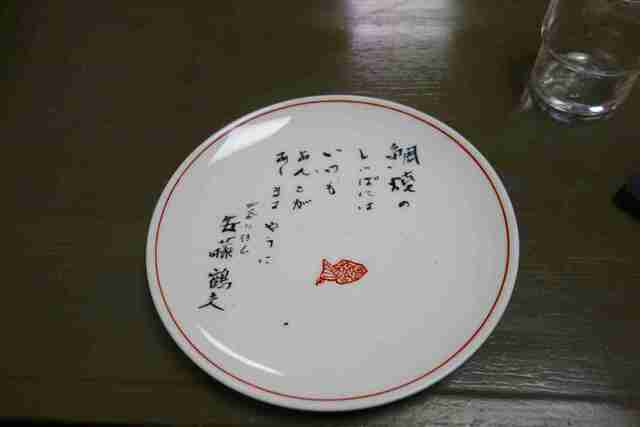 鯛焼の
しっぽには
いつも
あんこが
ありますやうに
安藤鶴夫